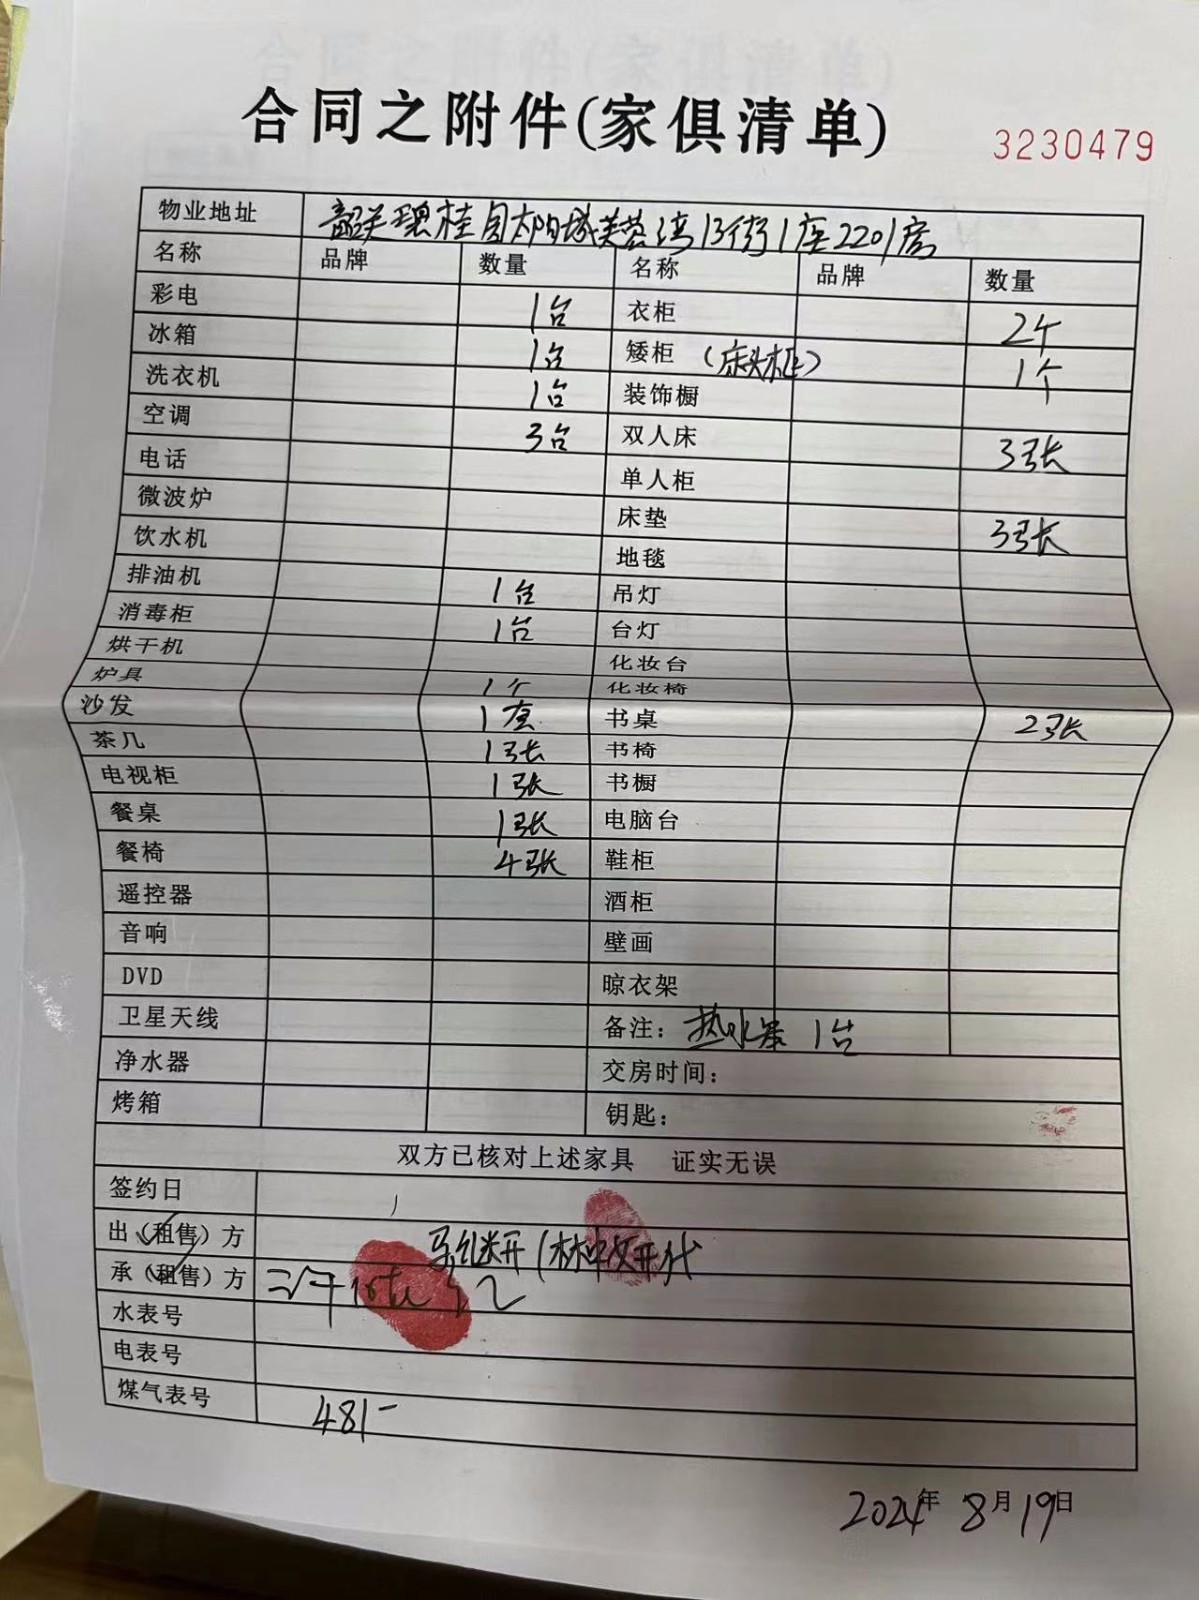 合同之附件(家俱清单)
3230479
物业地址 韶关碧桂园太阳城芙蓉湾13街1座2201房
名称 品牌 数量 名称 品牌 数量
彩电 1台 衣柜 2个
冰箱 1台 矮柜 (床头柜) 1个
洗衣机 1台 装饰橱
空调 3台 双人床 3张
电话 单人柜
微波炉 床垫 3张
饮水机 地毯
排油机 1台 吊灯
消毒柜 1台 台灯
烘干机 化妆台
炉具 1个 化妆椅
沙发 1套 书桌 2张
茶几 1张 书椅
电视柜 1张 书橱
餐桌 1张 电脑台
餐椅 4张 鞋柜
遥控器 酒柜
音响 壁画
DVD 晾衣架
卫星天线 备注: 热水器 1台
净水器 交房时间:
烤箱 钥匙:
双方已核对上述家具 证实无误
签约日
出(租售)方
承(租售)方
水表号
电表号
煤气表号 481
2024年 8月19日